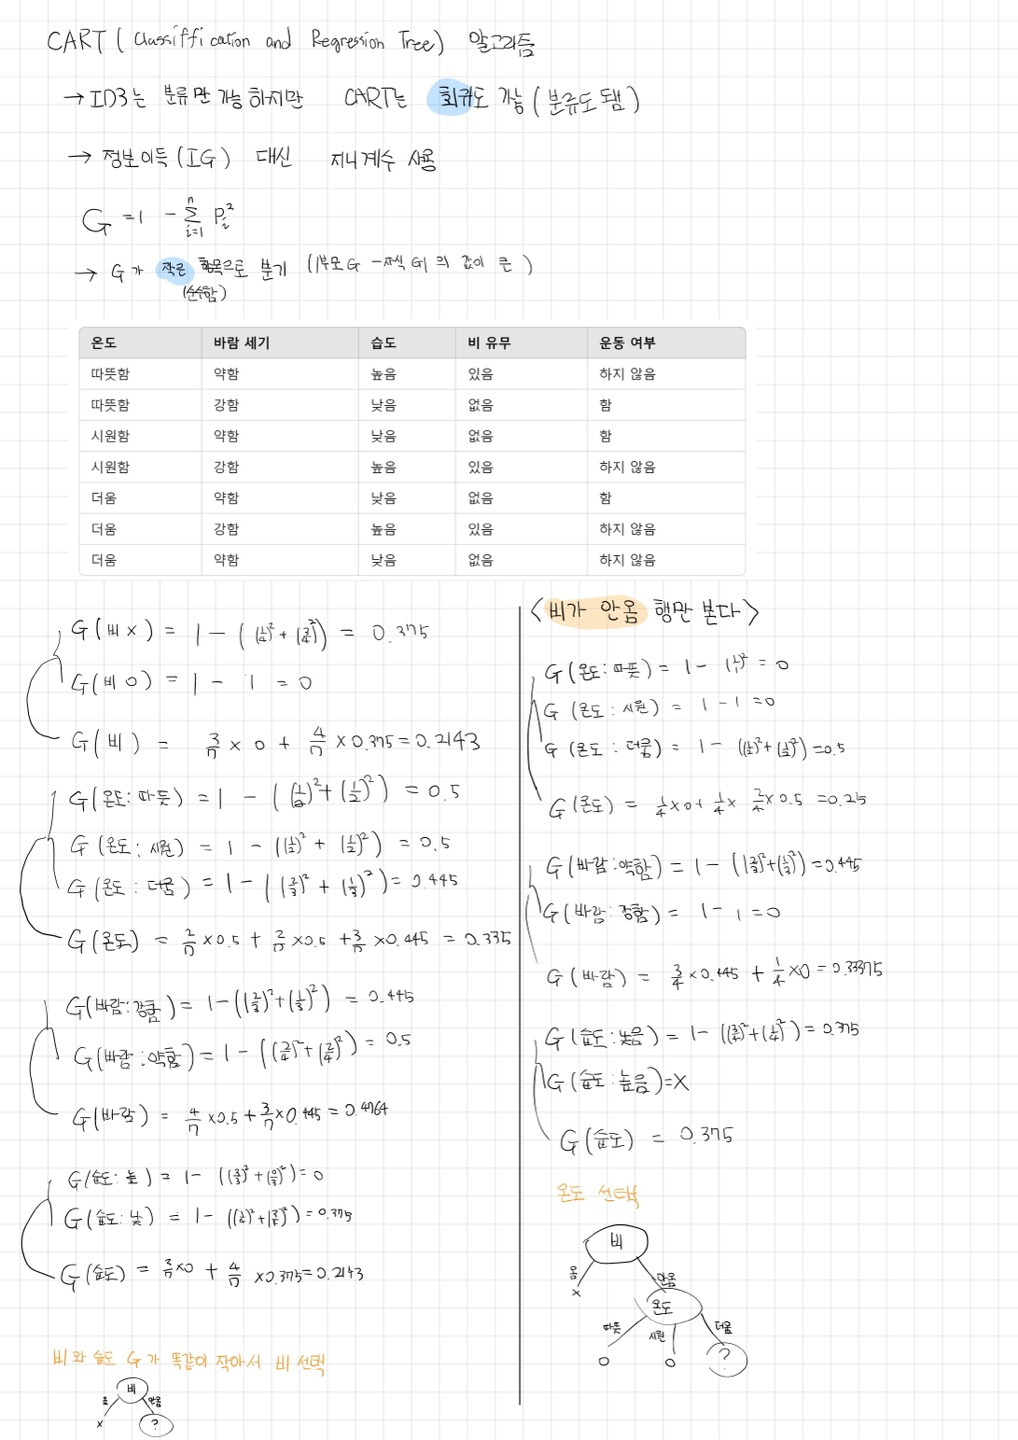 CART ( Classiffication and Regression Tree) 알고리즘
→ ID3는 분류만 가능하지만 CART는 회귀도 가능 ( 분류도 됨 )
→ 정보이득 (IG) 대신 지니계수 사용
G = 1 - Σ_{i=1}^{n} P_i²
→ G가 작은 항목으로 분기 (|부모 G - 자식 G| 의 값이 큰 )
(순수함)
온도 바람 세기 습도 비 유무 운동 여부
따뜻함 약함 높음 있음 하지 않음
따뜻함 강함 낮음 없음 함
시원함 약함 낮음 없음 함
시원함 강함 높음 있음 하지 않음
더움 약함 낮음 없음 함
더움 강함 높음 있음 하지 않음
더움 약함 낮음 없음 하지 않음
G(비 x) = 1 - ((1/4)² + (3/4)²) = 0.375
G(비 O) = 1 - 1 = 0
G(비) = 3/7 x 0 + 4/7 x 0.375 = 0.2143
G(온도: 따뜻) = 1 - ((1/2)² + (1/2)²) = 0.5
G(온도 : 시원) = 1 - ((1/2)² + (1/2)²) = 0.5
G(온도 : 더움) = 1 - ((2/3)² + (1/3)²) = 0.445
G(온도) = 2/7 x 0.5 + 2/7 x 0.5 + 3/7 x 0.445 = 0.335
G(바람: 강함) = 1 - ((2/3)² + (1/3)²) = 0.445
G(바람 : 약함) = 1 - ((2/4)² + (2/4)²) = 0.5
G(바람) = 4/7 x 0.5 + 3/7 x 0.445 = 0.4764
G(습도: 높) = 1 - ((3/3)² + (0/3)²) = 0
G(습도: 낮) = 1 - ((1/4)² + (3/4)²) = 0.375
G(습도) = 3/7 x 0 + 4/7 x 0.375 = 0.2143
비와 습도 G가 똑같이 작아서 비 선택
비
안옴
x
?
<비가 안옴 행만 본다>
G(온도: 따뜻) = 1 - (1/1)² = 0
G(온도 : 시원) = 1 - 1 = 0
G(온도 : 더움) = 1 - ((1/2)² + (1/2)²) = 0.5
G(온도) = 1/4 x 0 + 1/4 x 2/4 x 0.5 = 0.25
G(바람 : 약함) = 1 - ((2/3)² + (1/3)²) = 0.445
G(바람: 강함) = 1 - 1 = 0
G(바람) = 3/4 x 0.445 + 1/4 x 0 = 0.33375
G(습도: 낮음) = 1 - ((3/4)² + (1/4)²) = 0.375
G(습도: 높음) = X
G(습도) = 0.375
온도 선택
비
옴 안옴
x 온도
따뜻 시원 더움
O O ?